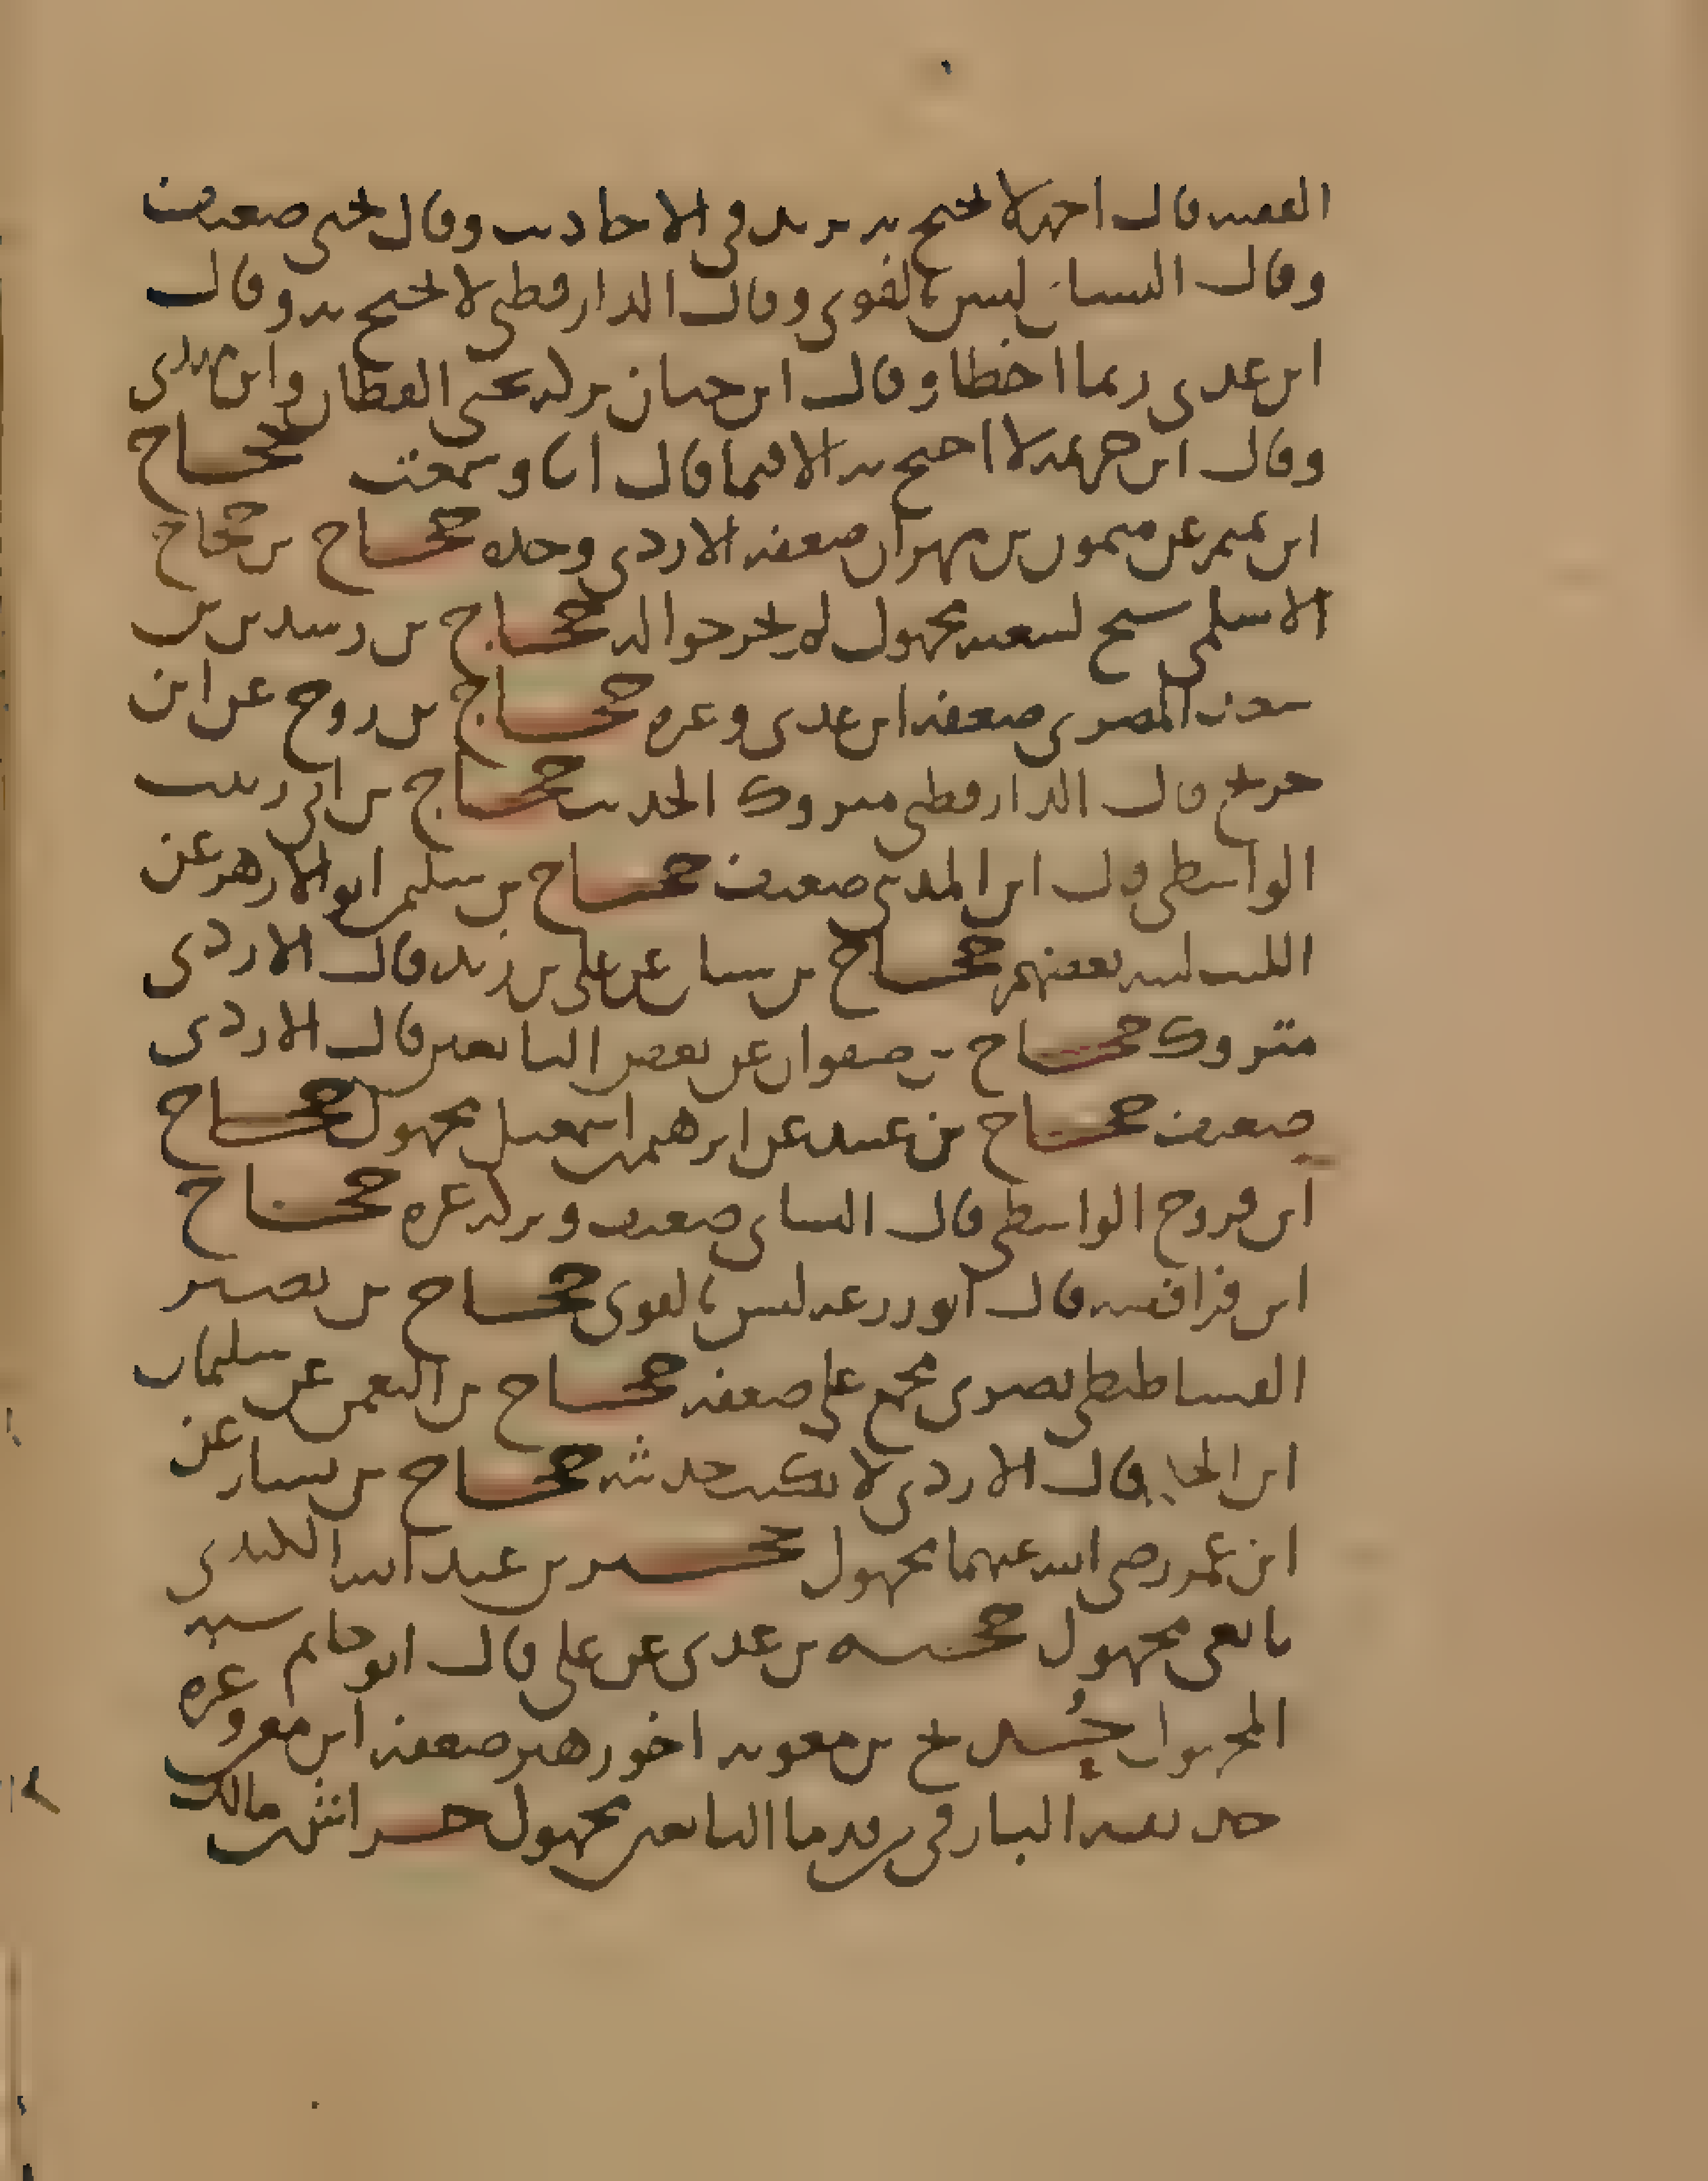 الفقيه قال احمد لا يحتج به يزيد في الاحاديث وقال يحيى ضعيف
وقال النسائي ليس بالقوي وقال الدارقطني لا يحتج به وقال
ابن عدي ربما اخطا وقال ابن حبان تركه يحيى القطان وابن مهدي
وقال ابن خزيمة لا احتج به الا فيما قال انا وسمعت حجاج
ابن تميم عن ميمون بن مهران ضعفه الازدي وحده حجاج بن حجاج
الاسلمي شيخ لشعبة مجهول لم يخرجوا له حجاج بن رشدين بن
سعد المصري ضعفه ابن عدي وغيره حجاج بن روح عن ابن
جريج قال الدارقطني متروك الحديث حجاج بن ابي زينب
الواسطي قال ابن المديني ضعيف حجاج بن سليمن ابو الازهر عن
الليث لينه بعضهم حجاج بن سنان عن علي بن زيد قال الازدي
متروك حجاج بن صفوان عن بعض التابعين قال الازدي
ضعيف حجاج بن عبيد عن ابرهيم بن اسمعيل مجهول حجاج
ابن فروخ الواسطي قال النسائي ضعيف وتركه غيره حجاج
ابن فرافصة قال ابو زرعة ليس بالقوي حجاج بن نصير
الفساطيطي بصري مجمع على ضعفه حجاج بن النعمن عن سليمان
ابن الحكم قال الازدي لا يكتب حديثه حجاج بن يسار عن
ابن عمر رضي الله عنهما مجهول حجر بن عبد الله الكندي
تابعي مجهول حجية بن عدي عن علي قال ابو حاتم شبه
المجهول حديج بن معوية اخو زهير ضعفه ابن معين وغيره
حذيفة البارقي من قدما التابعين مجهول حر انس بن مالك